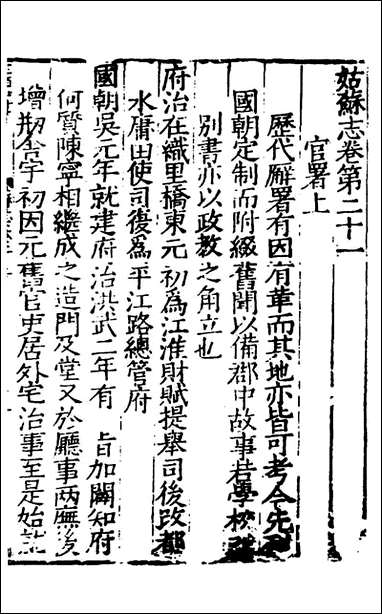 姑蘇志卷第二十一
官署上
歷代廨署有因有革而其地亦皆可考今先
國朝定制而附綴舊聞以備郡中故事若學校
別書亦以政教之角立也
府治在織里橋東元初爲江淮財賦提舉司後改都
水庸田使司復爲平江路總管府
國朝吳元年就建府治洪武二年有 旨加闢知府
何質陳寧相繼成之造門及堂又於廳事兩廡後
增剏舍宇初因元舊官吏居外宅治事至是始